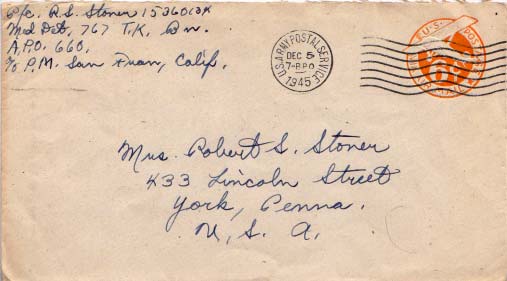 Pfc. R.S. Stoner
Med Det, 767 T.K. Bn.
A.P.O. 660,
c/o P.M. San Fran, Calif.
U.S. ARMY POSTAL SERVICE
DEC 5
7-B.P.O.
1945
U.S. POSTAGE
6¢
AIR MAIL
Mrs. Robert S. Stoner
433 Lincoln Street
York, Penna.
U. S. A.